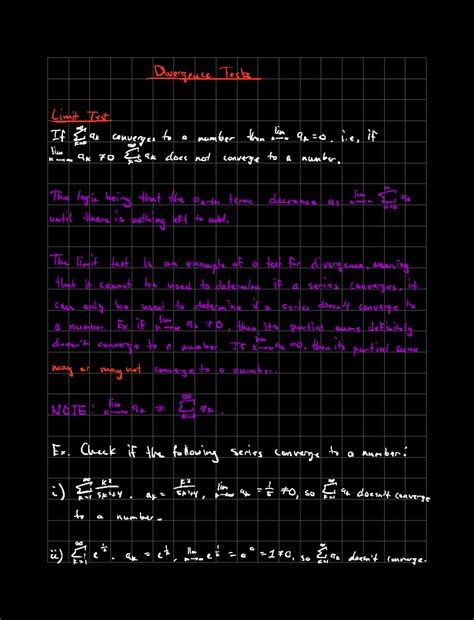 Divergence Tests
Limit Test
If ∑_{k=0}^{∞} a_k converges to a number then lim_{k→∞} a_k = 0. i.e, if
lim_{k→∞} a_k ≠ 0 ∑_{k=0}^{∞} a_k does not converge to a number.
The logic being that the terms decrease as lim ∑ a_k
until there is nothing left to add.
The limit test is an example of a test for divergence, meaning
that it cannot be used to determine if a series converges, it
can only be used to determine if a series doesn't converge to
a number. Ex if lim_{k→∞} a_k ≠ 0, then its partial sums definitely
doesn't converge to a number. If lim_{k→∞} a_k = 0, then its partial sums
may or may not converge to a number.
NOTE: lim_{k→∞} a_k ≠ ∑_{k=0}^{∞} a_k.
Ex. Check if the following series converge to a number:
i) ∑_{k=1}^{∞} k²/5k²+4. a_k = k²/5k²+4, lim_{k→∞} a_k = 1/5 ≠ 0, so ∑ a_k doesn't converge
to a number.
ii) ∑_{k=1}^{∞} e^{1/k}. a_k = e^{1/k}, lim_{k→∞} e^{1/k} = e^0 = 1 ≠ 0, so ∑ a_k doesn't converge.